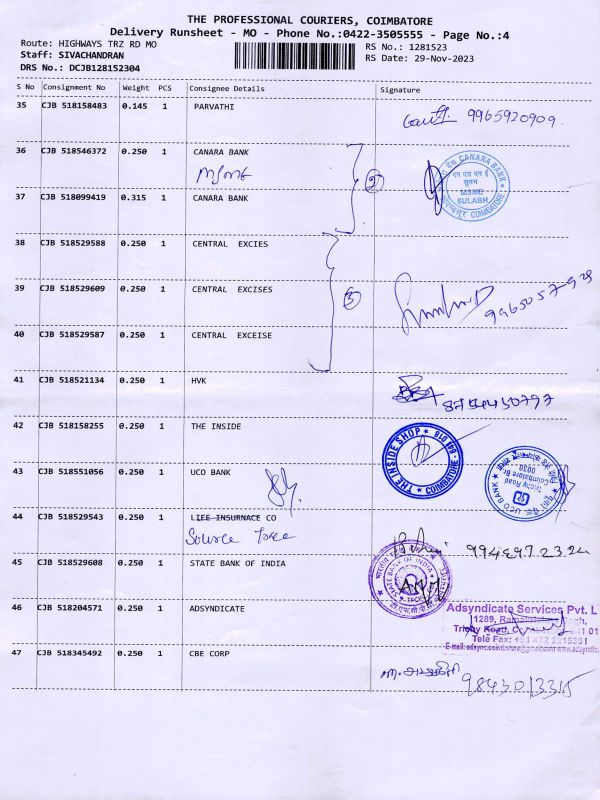 THE PROFESSIONAL COURIERS, COIMBATORE
Delivery Runsheet - MO - Phone No.:0422-3505555 - Page No.:4
Route: HIGHWAYS TRZ RD MO
RS No.: 1281523
Staff: SIVACHANDRAN
RS Date: 29-Nov-2023
DRS No.: DCJB128152304
S No Consignment No Weight PCS Consignee Details Signature
35 CJB 518158483 0.145 1 PARVATHI
9965920909
36 CJB 518546372 0.250 1 CANARA BANK
MSME
2
CANARA BANK
MSME
SULABH
COIMBATORE
37 CJB 518099419 0.315 1 CANARA BANK
38 CJB 518529588 0.250 1 CENTRAL EXCIES
39 CJB 518529609 0.250 1 CENTRAL EXCISES
3
9965057928
40 CJB 518529587 0.250 1 CENTRAL EXCEISE
41 CJB 518521134 0.250 1 HVK
8754450797
42 CJB 518158255 0.250 1 THE INSIDE
THE INSIDE SHOP
COIMBATORE - 641 018
43 CJB 518551056 0.250 1 UCO BANK
UCO BANK
Trichy Road
Coimbatore Br.
0030
44 CJB 518529543 0.250 1 LIEE INSURNACE CO
Source
45 CJB 518529608 0.250 1 STATE BANK OF INDIA
STATE BANK OF INDIA
46 CJB 518204571 0.250 1 ADSYNDICATE
Adsyndicate Services Pvt. L
1289,
Trichy Road,
Tele Fax: +91 422 2215301
47 CJB 518345492 0.250 1 CBE CORP
9843013315